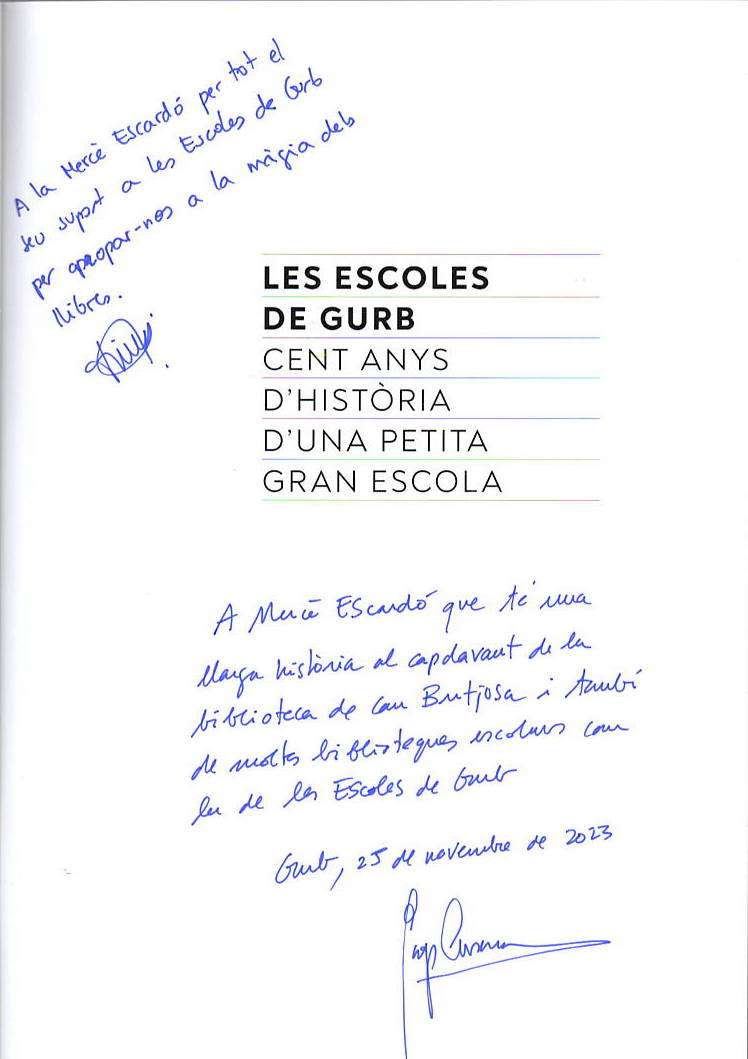 A la Mercè Escardó per tot el
seu suport a les Escoles de Gurb
per apropar-nos a la màgia dels
llibres.
LES ESCOLES
DE GURB
CENT ANYS
D'HISTÒRIA
D'UNA PETITA
GRAN ESCOLA
A Mercè Escardó que té una
llarga història al capdavant de la
biblioteca de can Butjosa i també
de moltes biblioteques escolars com
la de les Escoles de Gurb
Gurb, 25 de novembre de 2023